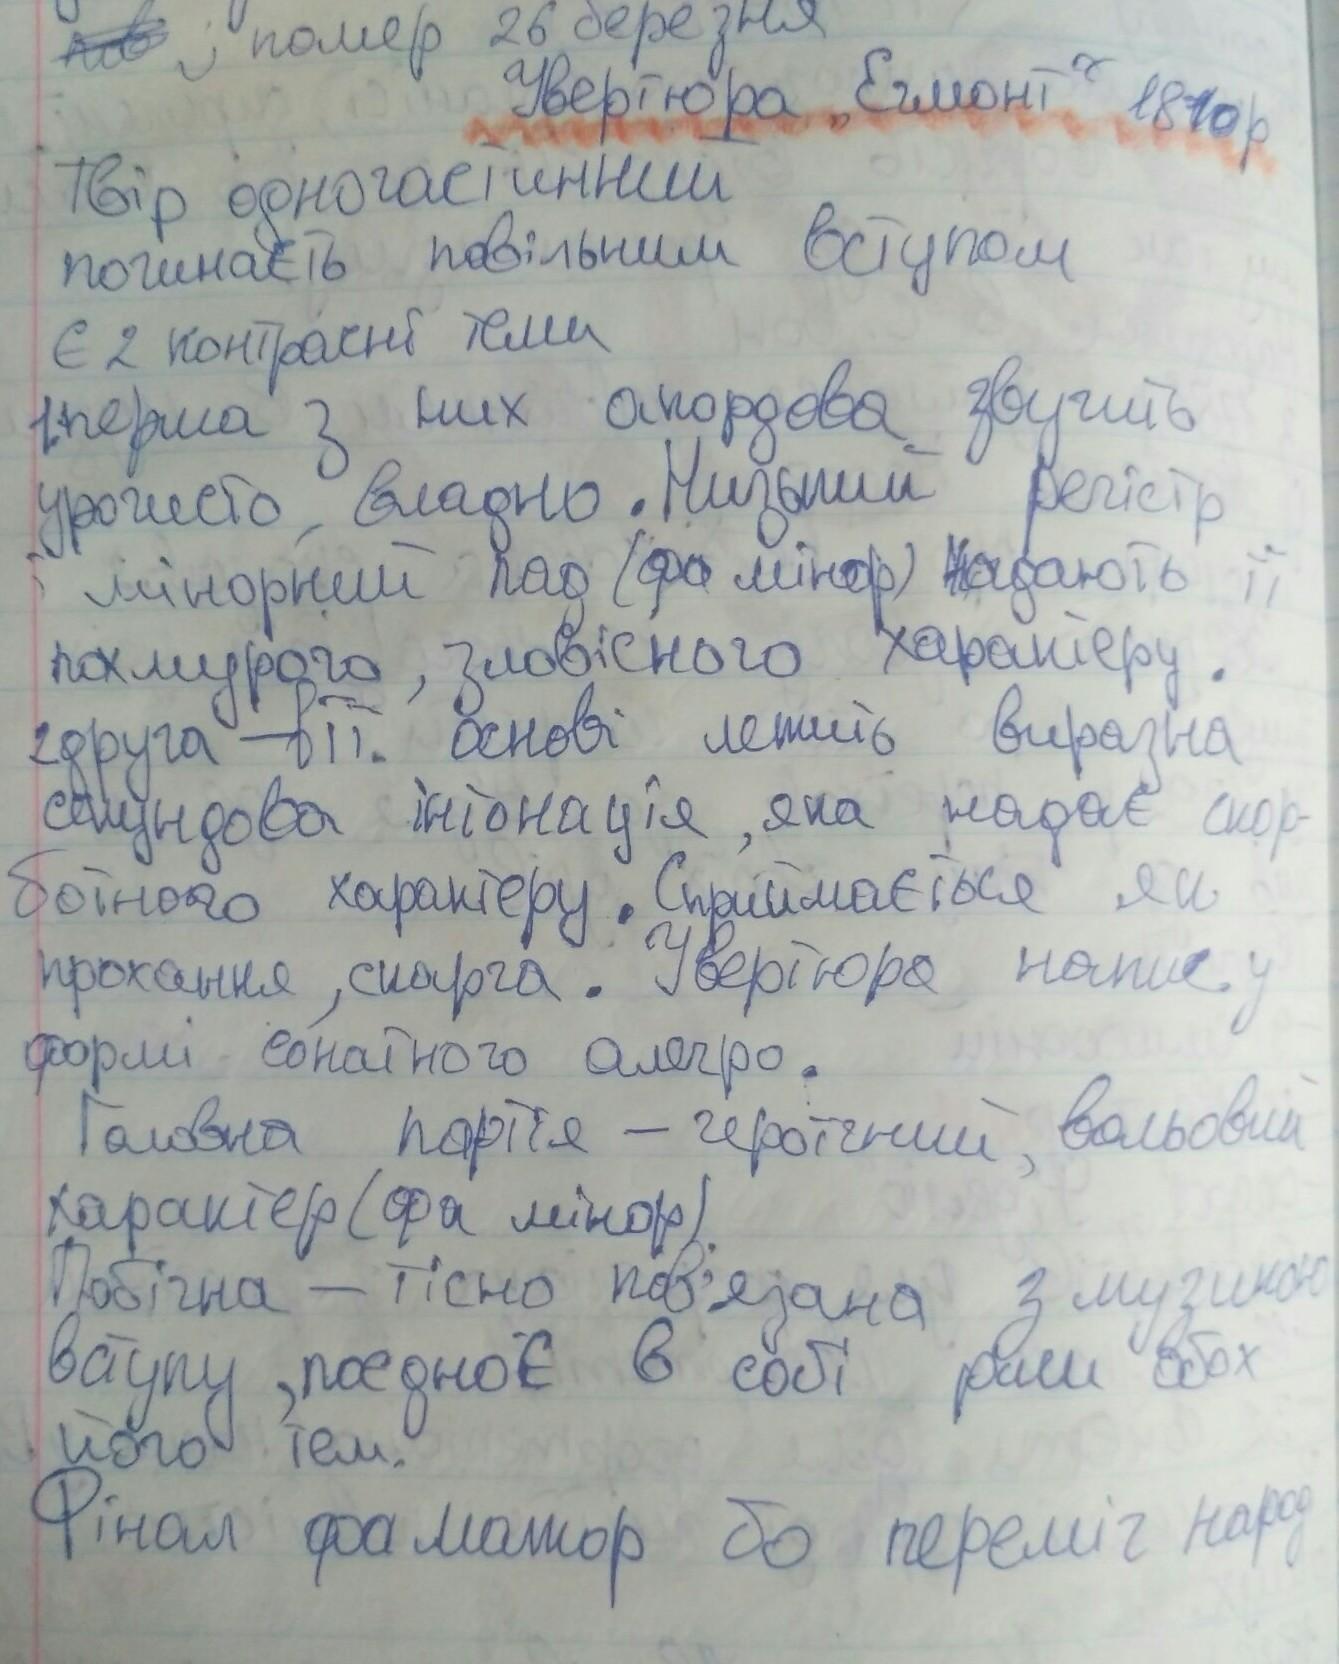 , помер 26 березня
Увертюра „Егмонт" 1810р
Твір одночастинний
починаєть повільним вступом
Є 2 контрасні теми
1.перша з них акордова звучить
урочисто, владно. Низький регістр
і мінорний лад (фа мінор) надають її
похмурого, зловісного характеру.
2друга – в її. основі лежить виразна
секундова інтонація, яка надає скор-
ботного характеру. Сприймається як
прохання, скарга. Увертюра напис. у
формі сонатного алегро.
Головна партія – героїчний, вольовий
характер (фа мінор).
Побічна – тісно пов'язана з музикою
вступу, поєднає в собі риси обох
його тем.
Фінал фа мажор бо переміг народ